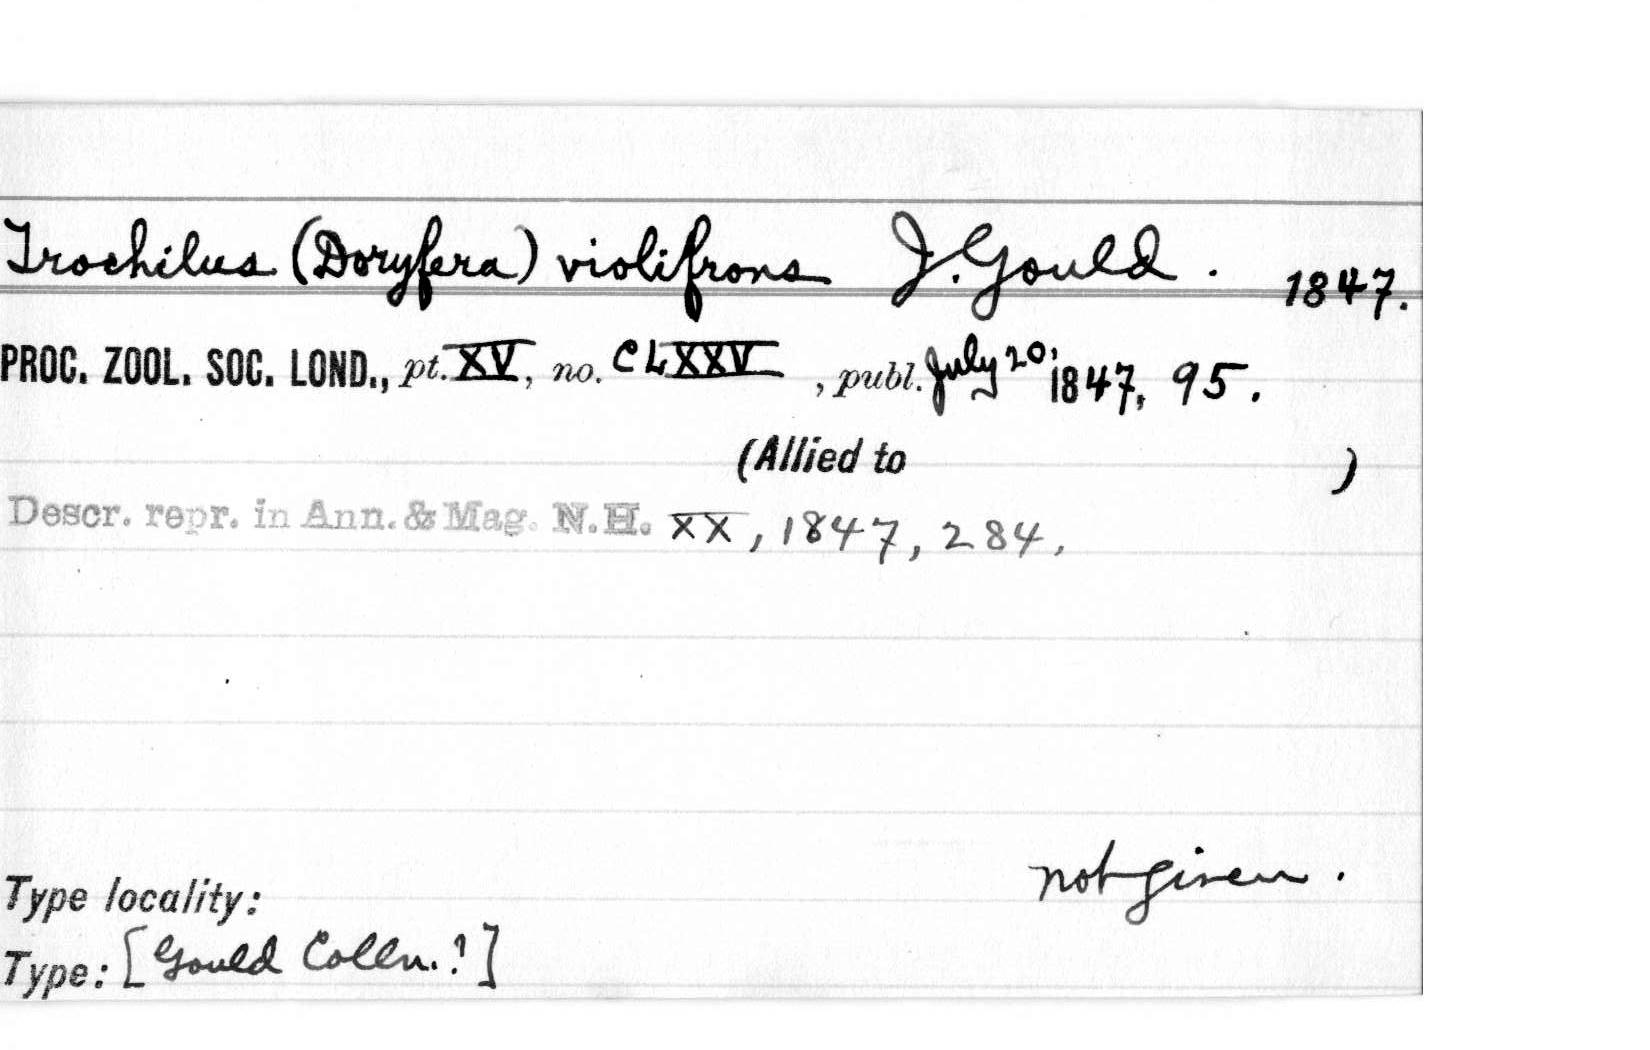 Trochilus (Doryfera) violifrons J. Gould. 1847.
PROC. ZOOL. SOC. LOND., pt. XV, no. CLXXV, publ. July 20, 1847, 95.
(Allied to )
Descr. repr. in Ann. & Mag. N.H. XX, 1847, 284.
not given.
Type locality:
Type: [Gould Colln.?]